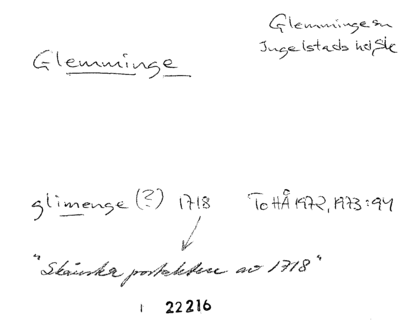 Glemminge sn
Ingelstads hd, Sk
Glemminge
glimenge (?) 1718 ToHÅ 1972, 1973:94
"Skånska postakten av 1718"
1 22216